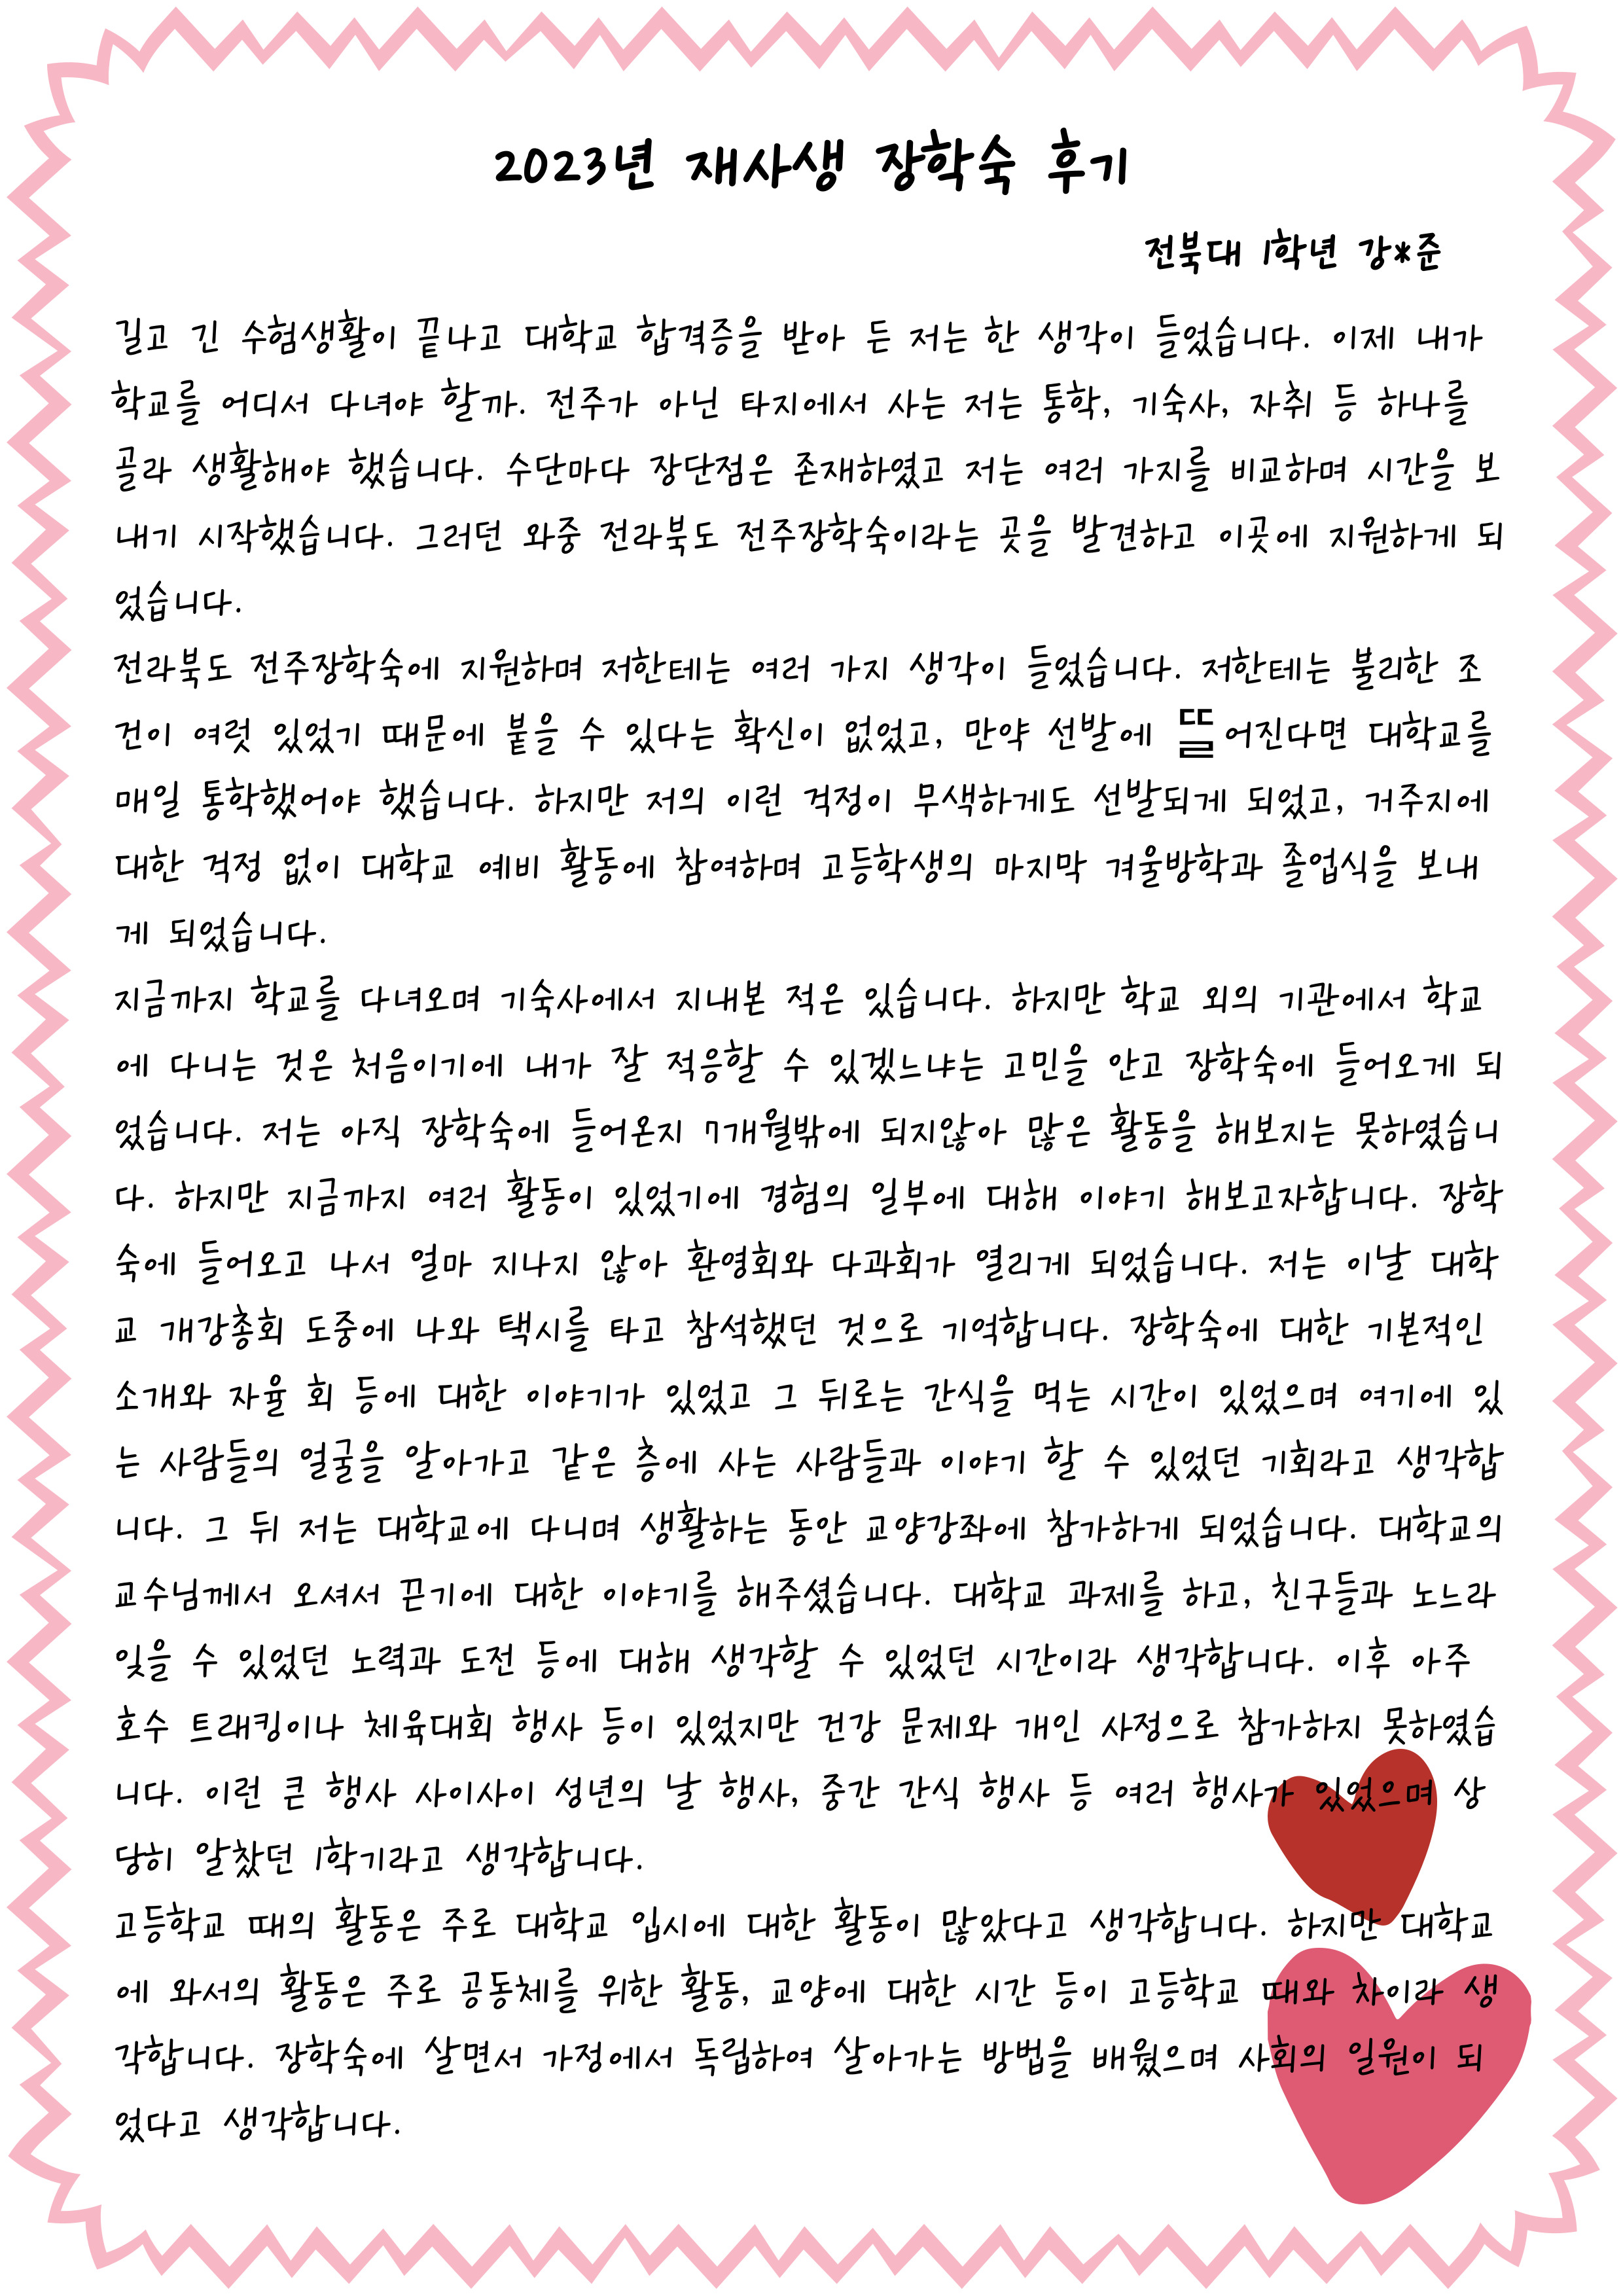 2023년 재사생 장학숙 후기
전북대 1학년 강*준
길고 긴 수험생활이 끝나고 대학교 합격증을 받아 든 저는 한 생각이 들었습니다. 이제 내가
학교를 어디서 다녀야 할까. 전주가 아닌 타지에서 사는 저는 통학, 기숙사, 자취 등 하나를
골라 생활해야 했습니다. 수단마다 장단점은 존재하였고 저는 여러 가지를 비교하며 시간을 보
내기 시작했습니다. 그러던 와중 전라북도 전주장학숙이라는 곳을 발견하고 이곳에 지원하게 되
었습니다.
전라북도 전주장학숙에 지원하며 저한테는 여러 가지 생각이 들었습니다. 저한테는 불리한 조
건이 여럿 있었기 때문에 붙을 수 있다는 확신이 없었고, 만약 선발에 뜰어진다면 대학교를
매일 통학했어야 했습니다. 하지만 저의 이런 걱정이 무색하게도 선발되게 되었고, 거주지에
대한 걱정 없이 대학교 예비 활동에 참여하며 고등학생의 마지막 겨울방학과 졸업식을 보내
게 되었습니다.
지금까지 학교를 다녀오며 기숙사에서 지내본 적은 있습니다. 하지만 학교 외의 기관에서 학교
에 다니는 것은 처음이기에 내가 잘 적응할 수 있겠느냐는 고민을 안고 장학숙에 들어오게 되
었습니다. 저는 아직 장학숙에 들어온지 7개월밖에 되지않아 많은 활동을 해보지는 못하였습니
다. 하지만 지금까지 여러 활동이 있었기에 경험의 일부에 대해 이야기 해보고자합니다. 장학
숙에 들어오고 나서 얼마 지나지 않아 환영회와 다과회가 열리게 되었습니다. 저는 이날 대학
교 개강총회 도중에 나와 택시를 타고 참석했던 것으로 기억합니다. 장학숙에 대한 기본적인
소개와 자율 회 등에 대한 이야기가 있었고 그 뒤로는 간식을 먹는 시간이 있었으며 여기에 있
는 사람들의 얼굴을 알아가고 같은 층에 사는 사람들과 이야기 할 수 있었던 기회라고 생각합
니다. 그 뒤 저는 대학교에 다니며 생활하는 동안 교양강좌에 참가하게 되었습니다. 대학교의
교수님께서 오셔서 끈기에 대한 이야기를 해주셨습니다. 대학교 과제를 하고, 친구들과 노느라
잊을 수 있었던 노력과 도전 등에 대해 생각할 수 있었던 시간이라 생각합니다. 이후 아주
호수 트래킹이나 체육대회 행사 등이 있었지만 건강 문제와 개인 사정으로 참가하지 못하였습
니다. 이런 큰 행사 사이사이 성년의 날 행사, 중간 간식 행사 등 여러 행사가 있었으며 상
당히 알찼던 1학기라고 생각합니다.
고등학교 때의 활동은 주로 대학교 입시에 대한 활동이 많았다고 생각합니다. 하지만 대학교
에 와서의 활동은 주로 공동체를 위한 활동, 교양에 대한 시간 등이 고등학교 때와 차이라 생
각합니다. 장학숙에 살면서 가정에서 독립하여 살아가는 방법을 배웠으며 사회의 일원이 되
었다고 생각합니다.